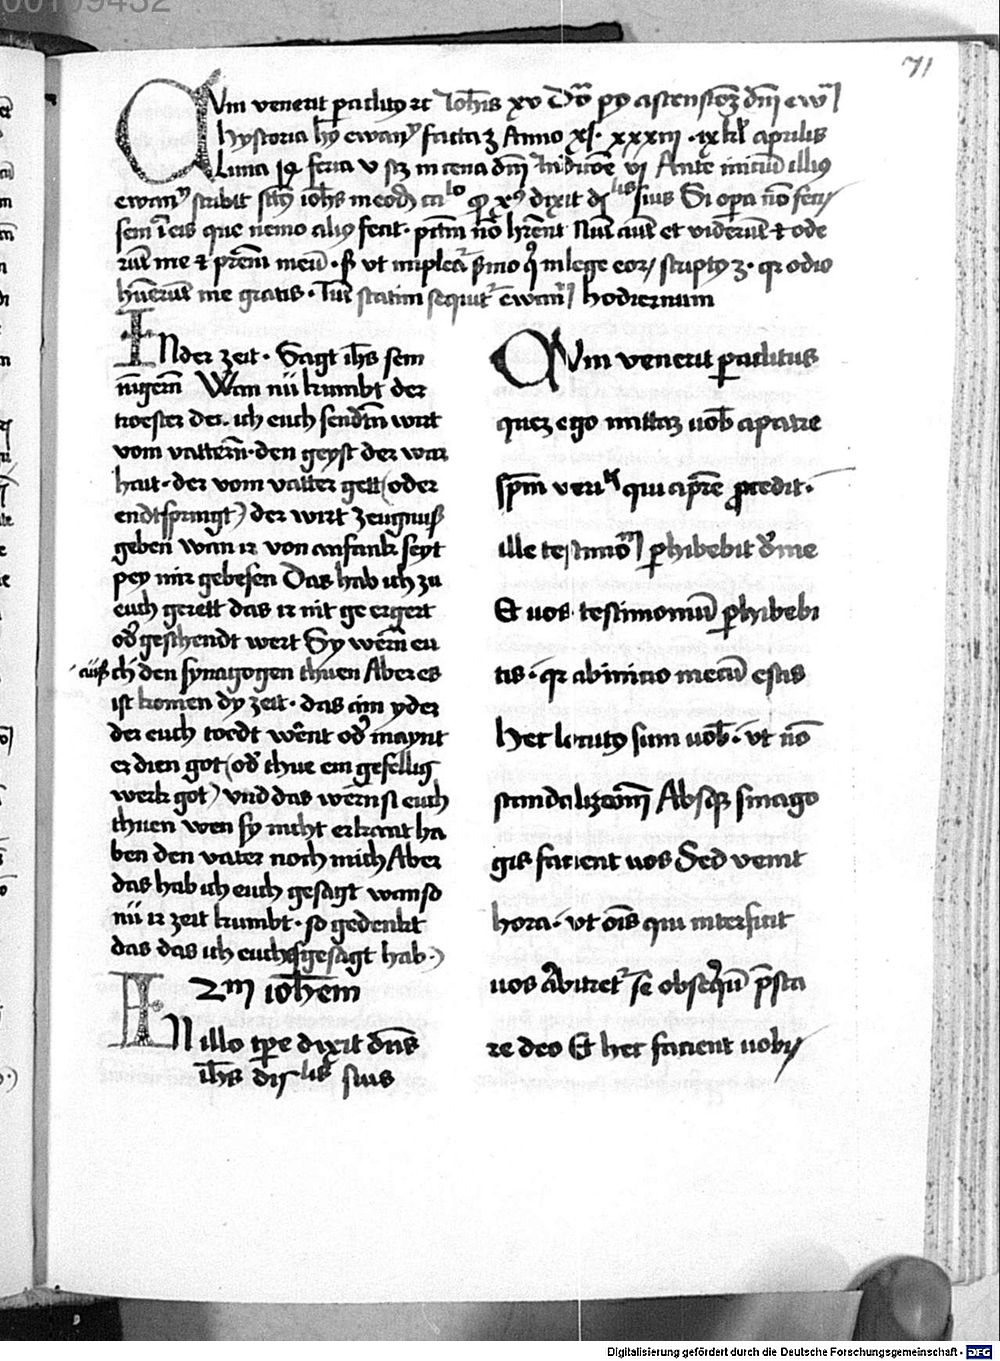 00109432
71
Cvm venerit paclitus etc Johis xv Do post ascensionem dni ewan
hystoria hui9 ewany facta est Anno xpi xxxiiij ix kl aprilis
Luna feria v in cena dni Indicoe vj Ante iniciu illi9
ewany scribit sctus iohes in eodem ca lo xps dixit disc lis suis Si opera no feci
sem i eis que nemo alius fecit pctm no hrent Nuc aute et viderut et ode
rut me et prem meu s3 vt implear sermo q in lege eor scriptus est qr odio
huerut me gratis Tuc statim sequit ewan hodiernum
INder zeit · Sagt ihs sein
iugern Wan nü kumbt der
troester der ich euch sendtn wirt
vom vattern · den geyst der war
hait · der vom vatter gett (oder
endtspringt) der wirt zeugnuß
geben wan ir von anfank seyt
pey mir gebesen Das hab ich zu
euch gerett das ir nit ge ergert
od geschendt wert Sy wern eu
auß ch den synagogen thuen Aber es
ist komen dy zeit · das ain yder
der euch toedt went od maynt
er dien got (od thue ein gefellig
werk got) vnd das wern si euch
thuen wen sy nicht erkant ha
ben den vater noch mich Aber
das hab ich euch gesagt wan so
nü ir zeit kumbt · so gedenkt
das das ich euchs gesagt hab ·)
2m iohem
IN illo tpe dixit dns
ihs dis lis suis
CVm venerit paclitus
quez ego mittaz uob a patre
spm veri tis qui a pre procedit ·
ille testimo phibebit de me
Et uos testimoniu phibebi
tis · qr ab inicio mecu estis
Hec locutus sum uob · vt no
scandalizemi Absq sinago
gis facient uos Sed venit
hora · vt ois qui interficit
uos Abitret se obsequiu psta
re deo Et hec facient uobis
Digitalisierung gefördert durch die Deutsche Forschungsgemeinschaft - DFG